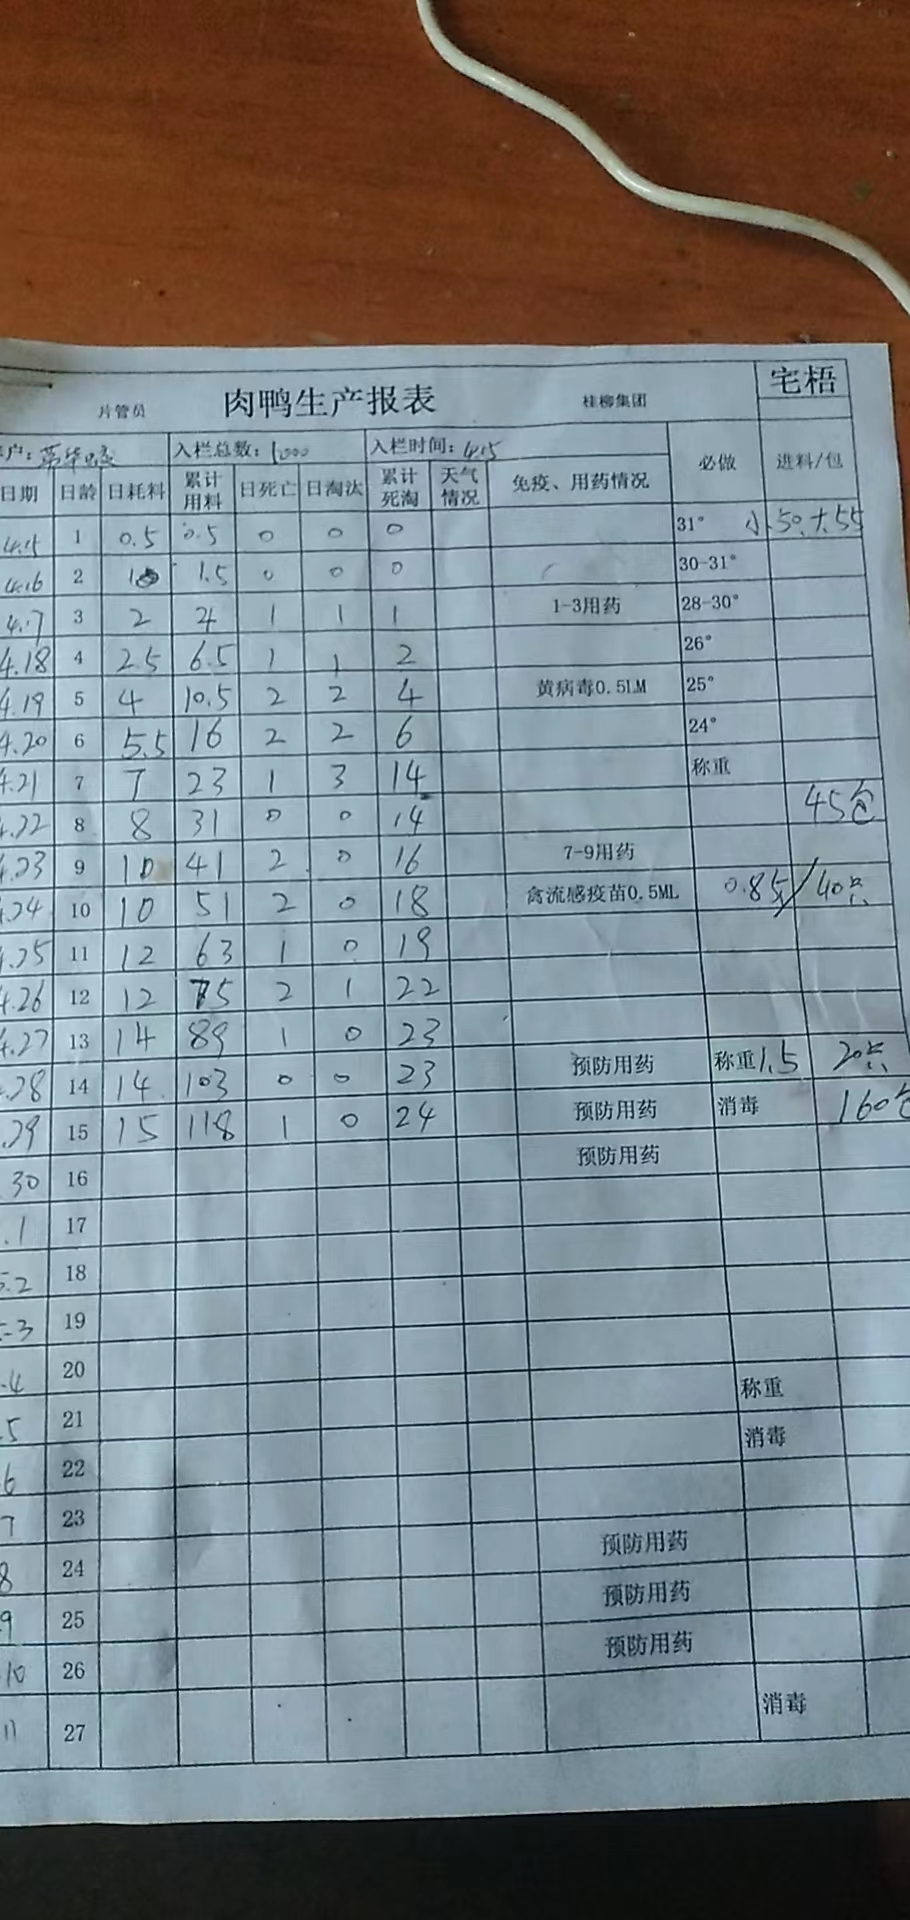 宅梧
片管员 肉鸭生产报表 桂柳集团
户: 入栏总数: 1000 入栏时间: 4.15 必做 进料/包
日期 日龄 日耗料 累计用料 日死亡 日淘汰 累计死淘 天气情况 免疫、用药情况
4.15 1 0.5 0.5 0 0 0 31° 小50.大55
4.16 2 1 1.5 0 0 0 30-31°
4.17 3 2 4 1 1 1 1-3用药 28-30°
4.18 4 2.5 6.5 1 1 2 26°
4.19 5 4 10.5 2 2 4 黄病毒0.5LM 25°
4.20 6 5.5 16 2 2 6 24°
4.21 7 7 23 1 3 14 称重
4.22 8 8 31 0 0 14 45包
4.23 9 10 41 2 0 16 7-9用药
4.24 10 10 51 2 0 18 禽流感疫苗0.5ML 0.8斤/40只
4.25 11 12 63 1 0 19
4.26 12 12 75 2 1 22
4.27 13 14 89 1 0 23
.28 14 14 103 0 0 23 预防用药 称重1.5 20只
.29 15 15 118 1 0 24 预防用药 消毒 160包
30 16 预防用药
.1 17
5.2 18
5-3 19
-4 20
5 21 称重
6 22 消毒
7 23
8 24 预防用药
9 25 预防用药
10 26 预防用药
11 27 消毒